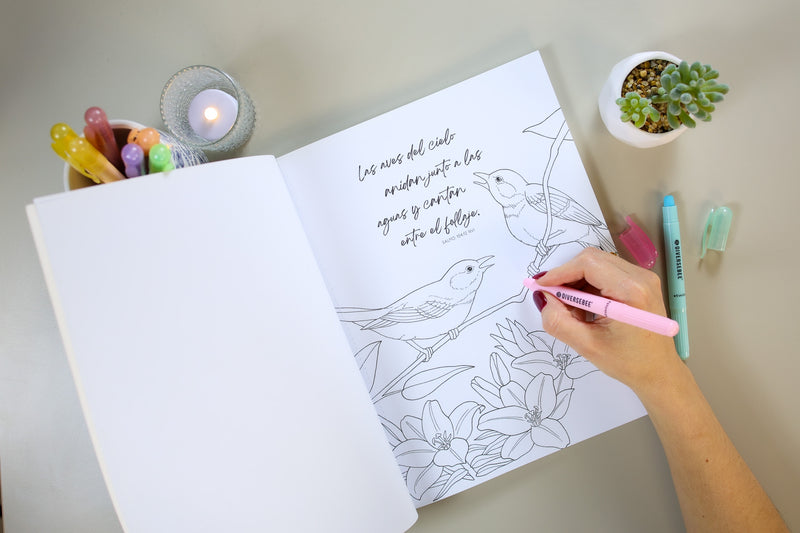 Las aves del cielo
anidan junto a las
aguas y cantan
entre el follaje.
SALMO 104:12 NVI
DIVERSEBEE
DIVERSEBEE